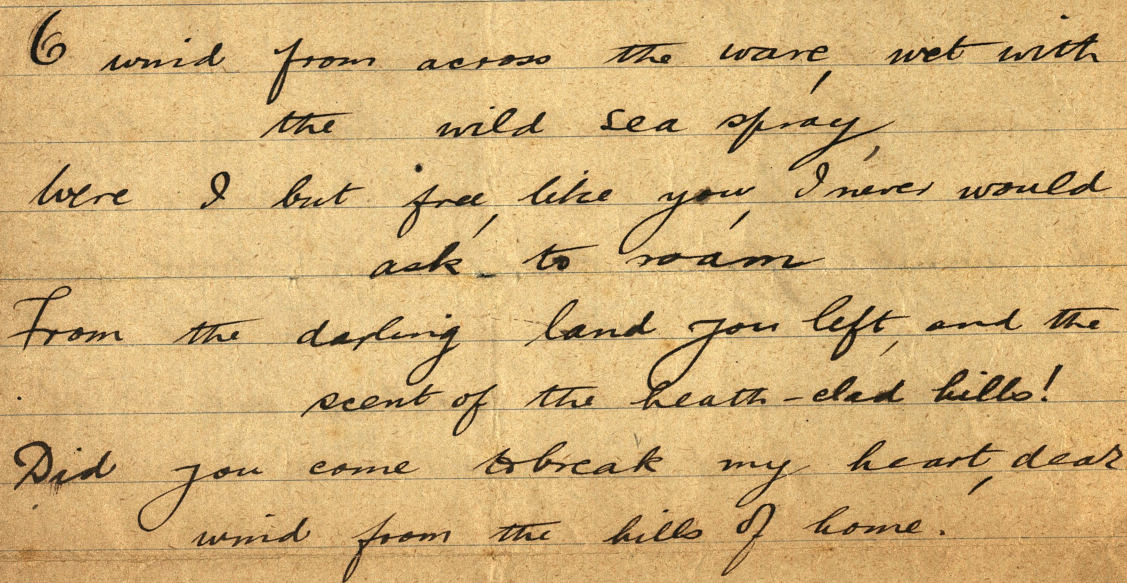 O wind from across the wave, wet with
the wild sea spray,
Were I but free, like you, I never would
ask to roam
From the darling land you left, and the
scent of the heath-clad hills!
Did you come to break my heart, dear
wind from the hills of home.